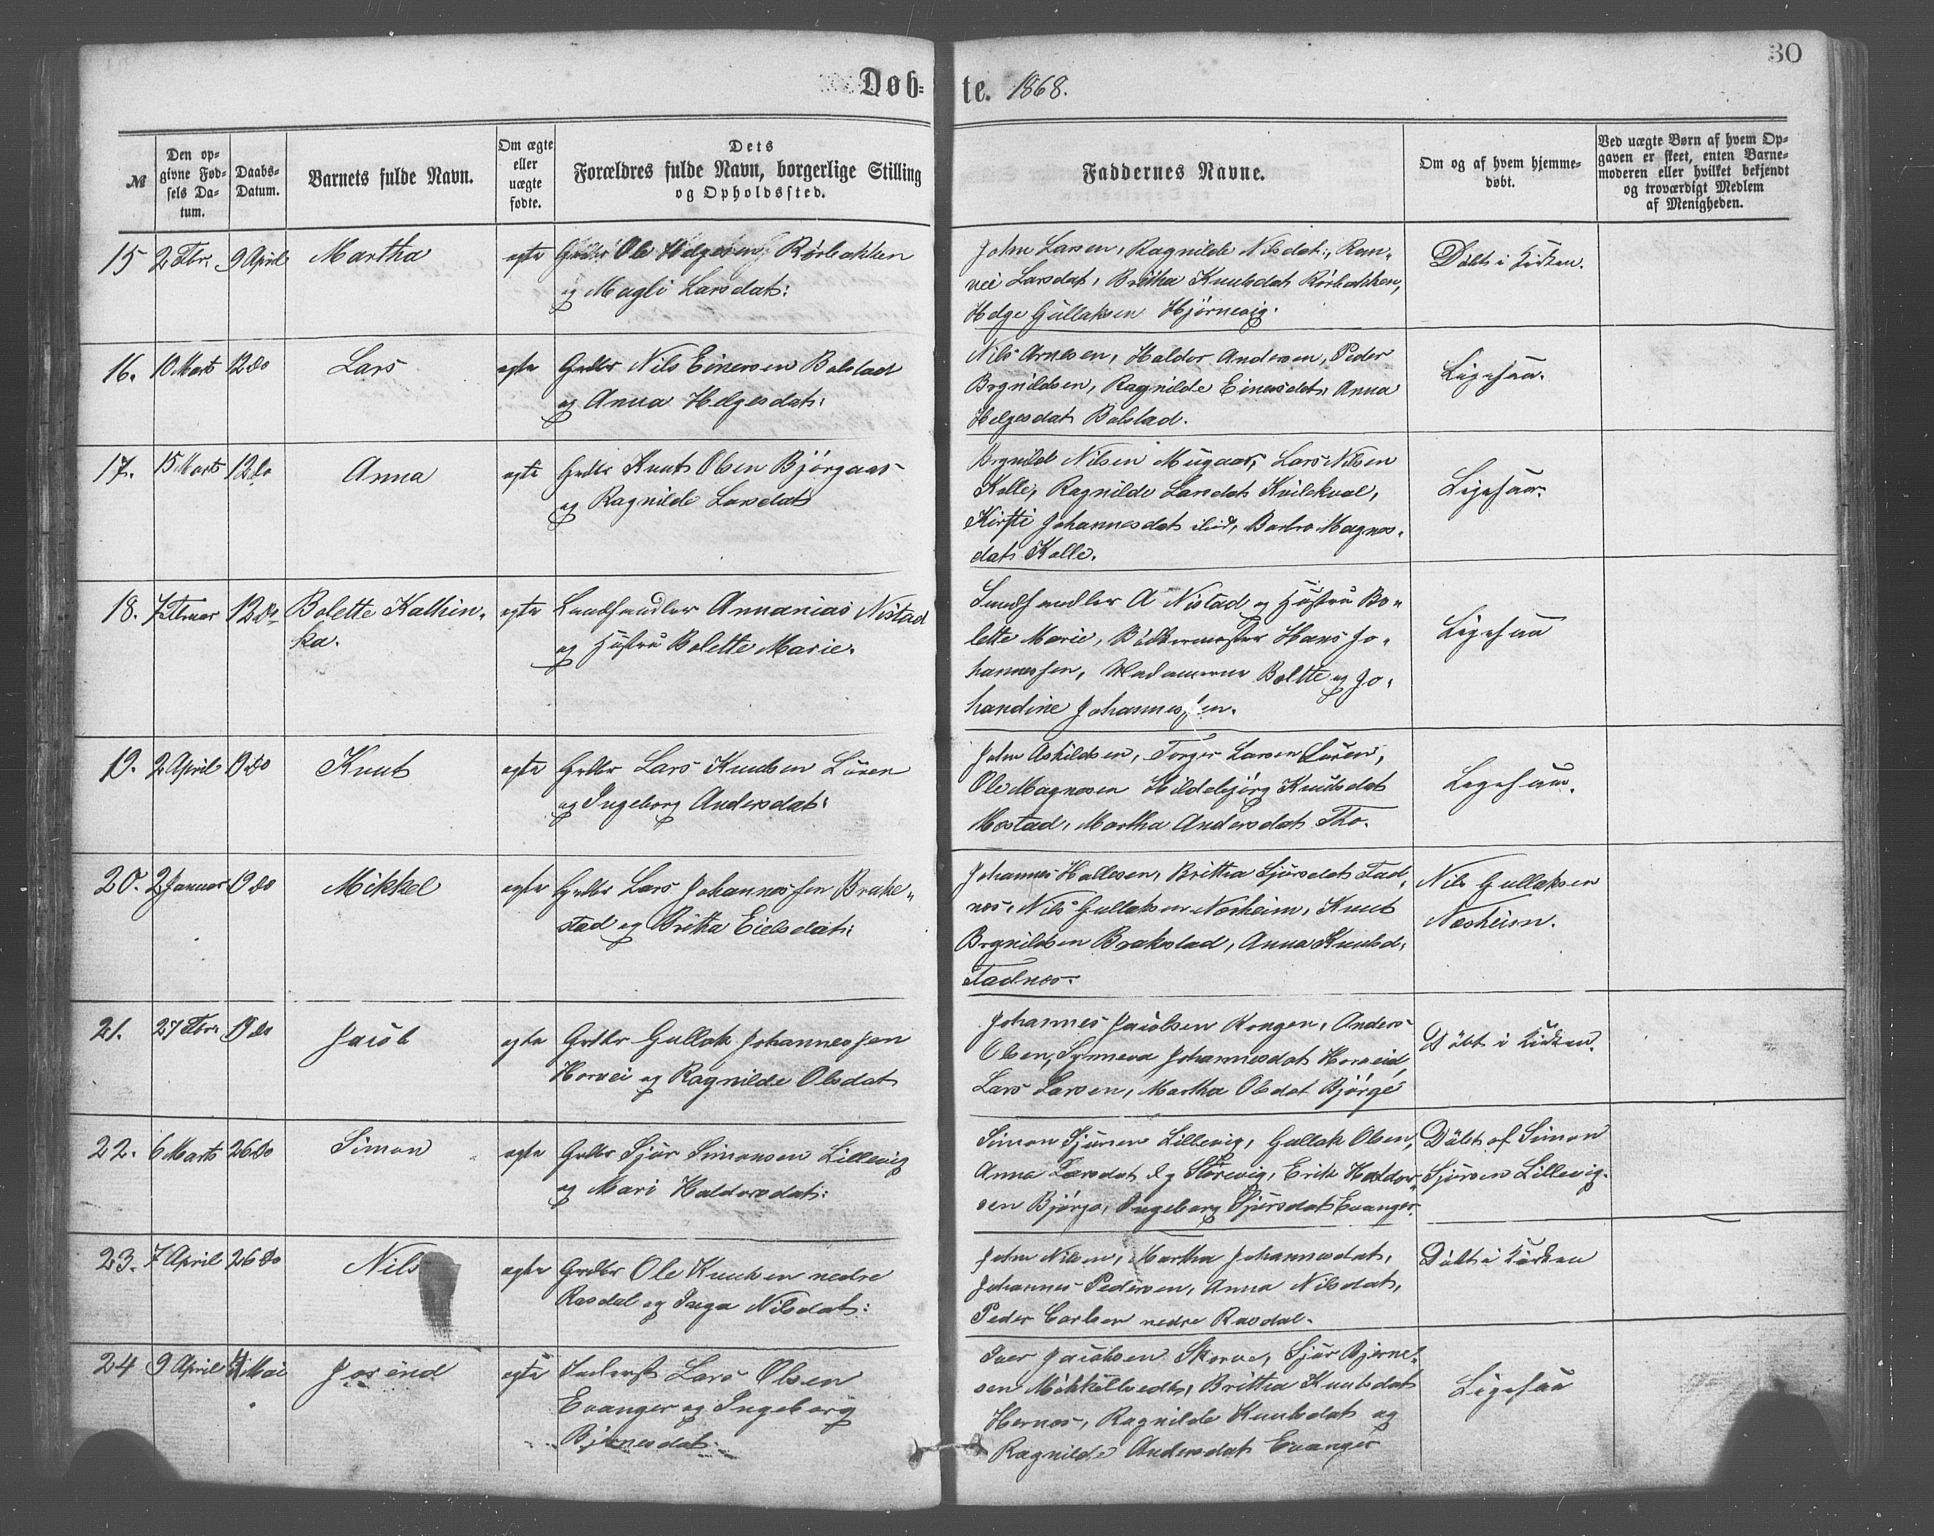 30
Døb-te. 1868.
№
Den op-
givne Fød-
sels Da-
tum.
Daabs-
Datum.
Barnets fulde Navn.
Om ægte
eller
uægte
fødte.
Dets
Forældres fulde Navn, borgerlige Stilling
og Opholdssted.
Faddernes Navne.
Om og af hvem hjemme-
døbt.
Ved uægte Børn af hvem Op-
gaven er skeet, enten Barne-
moderen eller hvilket bekjendt
og troværdigt Medlem
af Menigheden.
15 2 Fbr. 9 April Martha egte Grdbr Ole Helgesen Rørbakken
og Magli Larsdat:
John Larsen, Ragnilde Nilsdat:, Ran-
vei Larsdat, Britha Knutsdat Rørbakken,
Helge Gullaksen Hjørnevig.
Døbt i Kirken.
16. 10 Marts 12 do Lars egte Grdbr Nils Einersen Bolstad
og Anna Helgesdat:
Nils Arnesen, Haldor Andersen, Peder
Brynildsen, Ragnilde Einersdat, Anna
Helgesdat Bolstad.
Ligesaa.
17. 15 Marts 12 do Anna egte Grdbr Knut Olsen Bjørgaas
og Ragnilde Larsdat
Brynild Nilsen Mugaas, Lars Nilsen
Kolle, Ragnilde Larsdat Kvilekval,
Kirsti Johannesdat ibid, Barbro Magnes-
dat Kolle.
Ligesaa.
18. 7 Februar 12 do Bolette Kathin-
ka. egte Landhandler Annanias Nistad
og Hustru Bolette Marie.
Landhandler A Nistad og Hustru Bo-
lette Marie, Bødkermester Hans Jo-
hannessen, Madamerne Bolette og Jo-
handine Johannessen.
Ligesaa
19. 2 April 19 do Knut egte Grdbr Lars Knutsen Lüren
og Ingeborg Andersdat:
John Askildsen, Torger Larsen Lüren,
Ole Magnesen Hildebjørg Knutsdat
Mestad, Martha Andersdat Tho.
Ligesaa.
20. 2 Januar 19 do Mikkel egte Grdbr Lars Johannessen Brake-
stad og Britha Eielsdat:
Johannes Hallesen, Brittha Sjursdat Fad-
nes, Nils Gullaksen Nesheim, Knut
Brynildsen Brakestad, Anna Knutsd.
Fadnes.
Nils Gullaksen
Nesheim.
21. 27 Fbr. 19 do Jacob egte Grdbr Gullak Johannessen
Horvei og Ragnilde Olsdat
Johannes Jacobsen Kongen, Anders
Olsen, Synneva Johannesdat Horveid,
Lars Larsen, Martha Olsdat Bjørge
Døbt i Kirken.
22. 6 Marts 26 do Simon egte Grdbr Sjur Simonsen Lillevig
og Mari Haldorsdat:
Simon Sjursen Lillevig, Gullak Olsen,
Anna Larsdat Storevig, Erik Haldor-
sen Bjørge, Ingeborg Sjursdat Evanger.
Døbt af Simon
Sjursen Lillevig.
23. 7 April 26 do Nils egte Grdbr Ole Knutsen nedre
Rasdal og Inga Nilsdat:
John Nilsen, Martha Johannesdat,
Johannes Pedersen, Anna Nilsdat,
Peder Carlsen nedre Rasdal.
Døbt i Kirken
24 9 April Mai Josend egte Inderst Lars Olsen
Evanger og Ingeborg
Bjørnesdat.
Iver Jacobsen Skorve, Sjur Bjørne-
sen Mikkeltvedt, Brittha Knutsdat
Hernes, Ragnilde Knutsdat og
Ragnilde Andersdat Evanger
Ligesaa